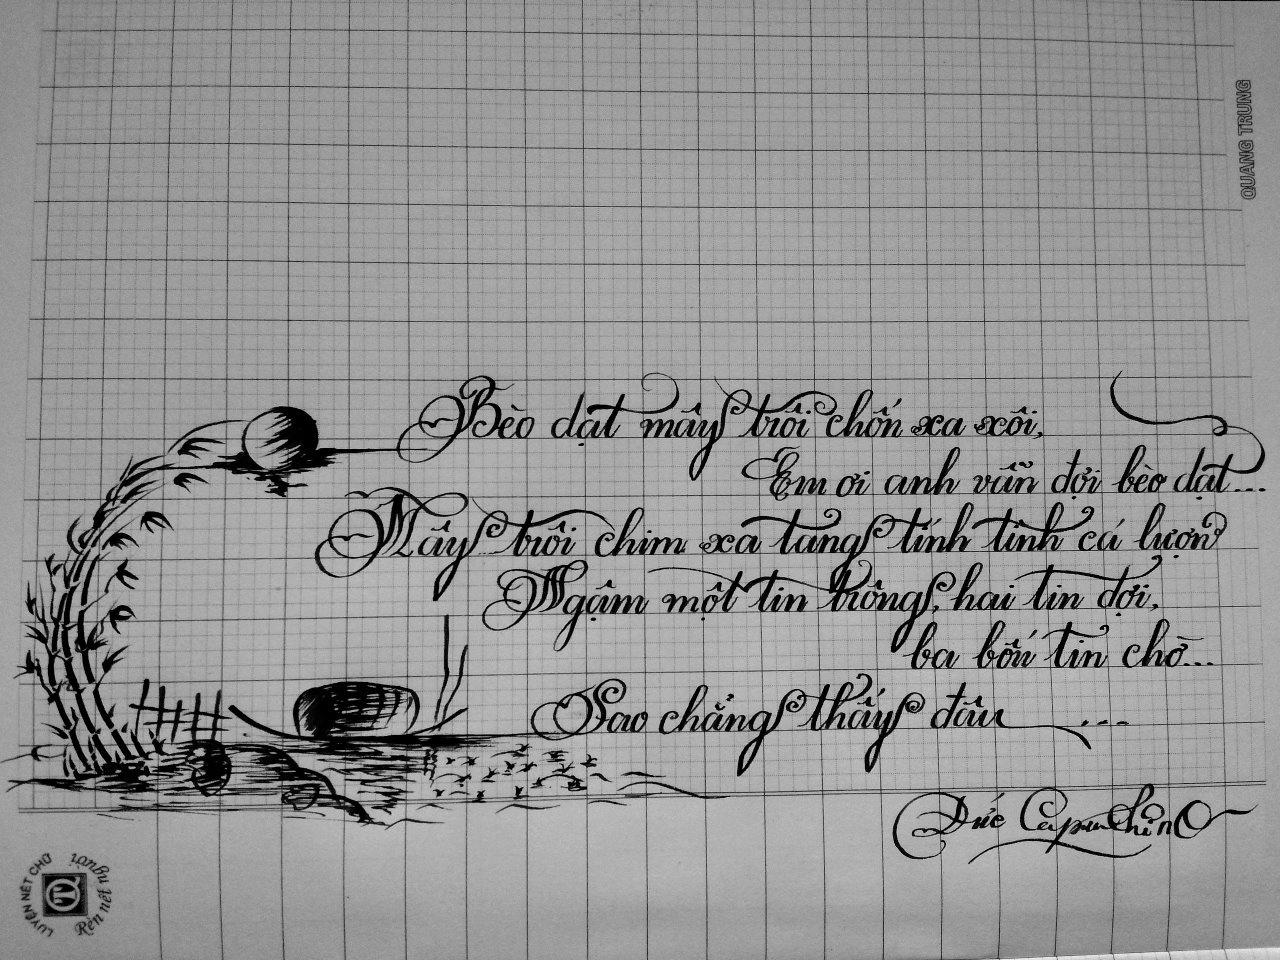 QUANG TRUNG
Bèo dạt mây trôi chốn xa xôi,
Em ơi anh vẫn đợi bèo dạt...
Mây trôi chim xa tang tính tình cá lượn
Ngậm một tin trông, hai tin đợi,
ba bốn tin chờ...
Sao chẳng thấy đâu ...
Đức CapuchinO
LUYỆN NÉT CHỮ
Rèn nết người